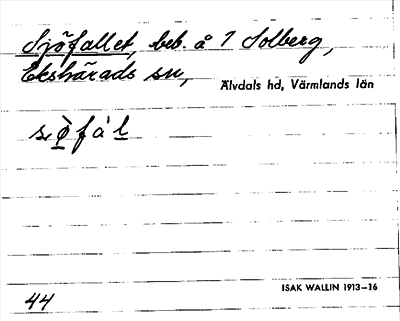 Sjöfallet, beb. å 7 Solberg,
Ekshärads sn,
Älvdals hd, Värmlands län
ISAK WALLIN 1913–16
44